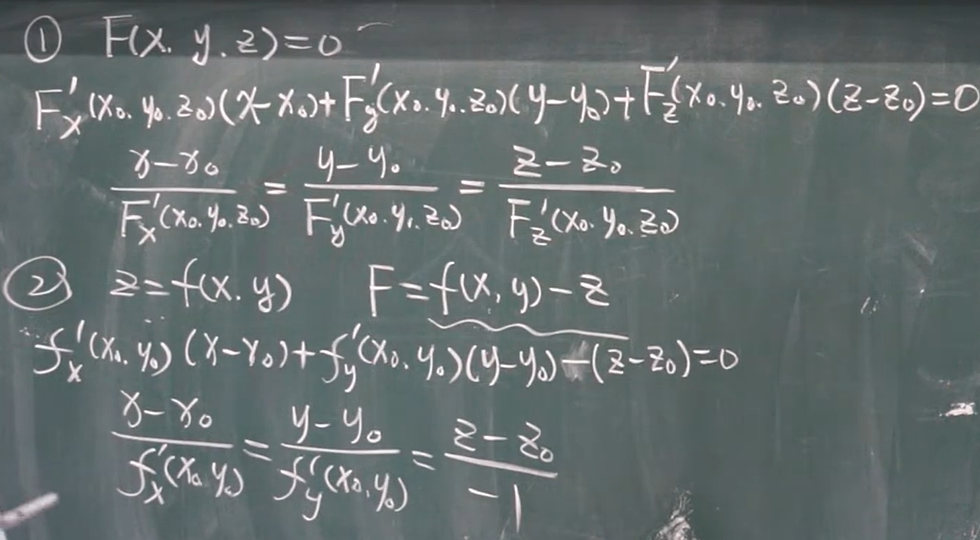 ① F(x. y. z)=0
F'x(x0. y0. z0)(x-x0)+F'y(x0. y0. z0)(y-y0)+F'z(x0. y0. z0)(z-z0)=0
(x-x0)/(F'x(x0. y0. z0)) = (y-y0)/(F'y(x0. y0. z0)) = (z-z0)/(F'z(x0. y0. z0))
② z=f(x. y) F=f(x, y)-z
f'x(x0. y0)(x-x0)+f'y(x0. y0)(y-y0)-(z-z0)=0
(x-x0)/(f'x(x0. y0)) = (y-y0)/(f'y(x0, y0)) = (z-z0)/(-1)